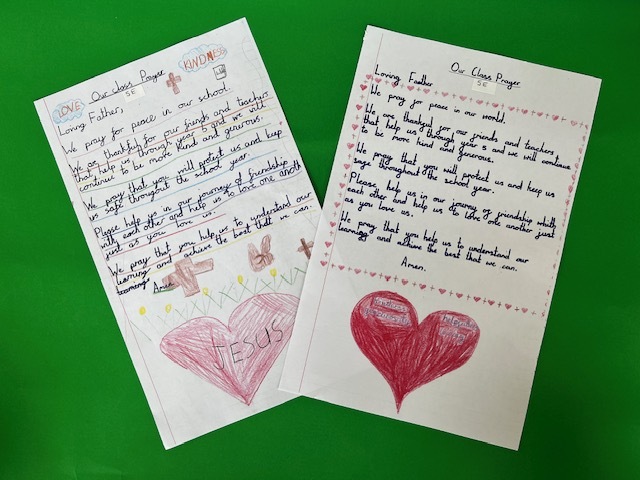 LOVE
Our class Prayer
5E
KINDNESS
Loving Father,
We pray for peace in our school.
We are thankful for our friends and teachers
that help us through year 5 and we will
continue to be more kind and generous.
We pray that you will protect us and keep
us safe throughout the school year.
Please help us in our journey of friendship
with each other and help us to love one anoth
just as you love us.
We pray that you help us to understand our
learning and achieve the best that we can.
Amen
JESUS
Our Class Prayer
5E
Loving Father
We pray for peace in our world.
We are thankful for our friends and teachers
that help us through year 5 and we will continue
to be more kind and generous.
We pray that you will protect us and keep us
safe throughout the school year.
Please, help us in our journey of friendship with
each other and help us to love one another just
as you love us.
We pray that you help us to understand our
learning and achieve the best that we can.
Amen.